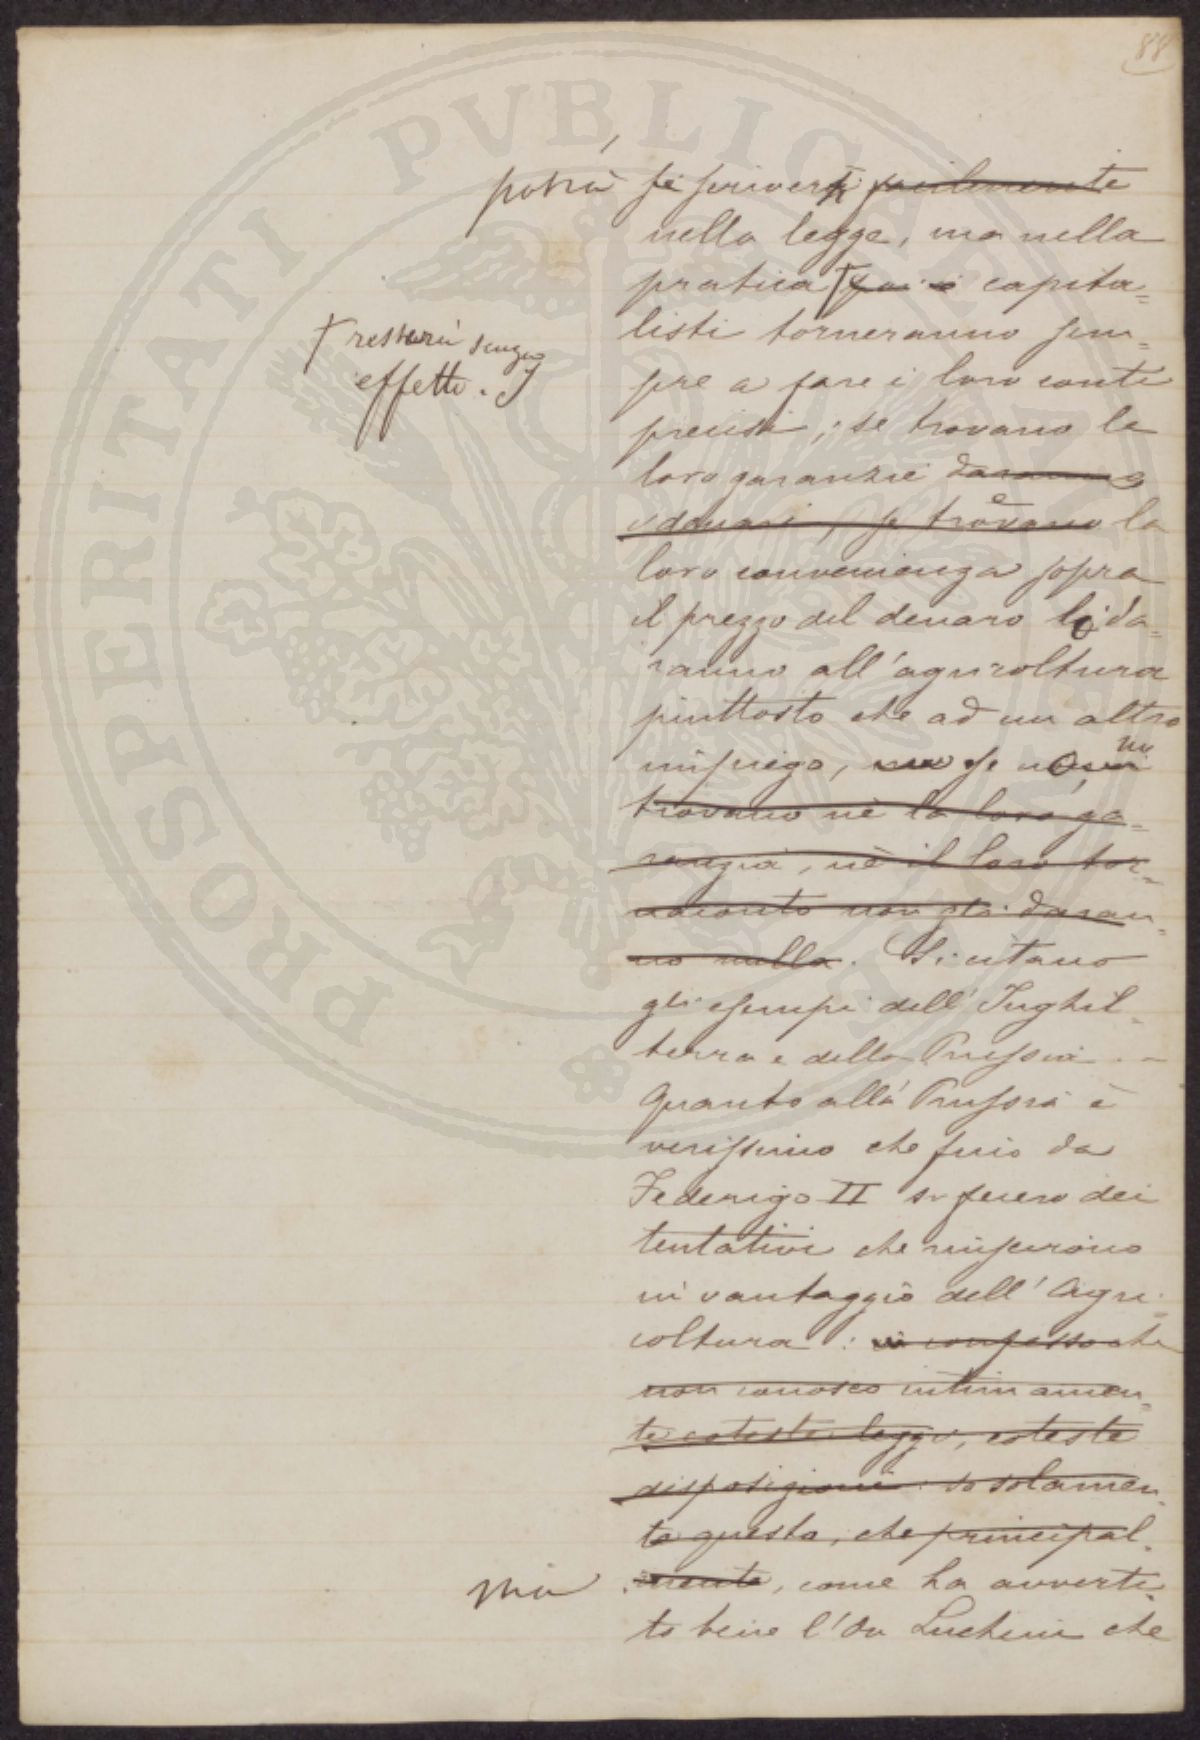 88
potrà si scriversi facilmente
nella legge, ma nella
pratica T fa i capita=
T resterà senza
effetto. I
listi torneranno sem=
pre a fare i loro conti
precisi; se trovano le
loro garanzie daranno
i denari, se trovano e la
loro convenienza sopra
il prezzo del denaro lo da=
ranno all'agricoltura
piuttosto che ad un altro
impiego, se no
trovano nè la loro ga=
ranzia, nè il loro tor=
naconto non gli daran=
no nulla. Si citano
gli esempi dell'Inghil=
terra e della Prussia. —
Quanto alla Prussia è
verissimo che fino da
Federigo II si fecero dei
tentativi che riuscirono
in vantaggio dell'Agri=
coltura: vi confesso che
non conosco intimamen=
te coteste leggi, coteste
disposizioni: so solamen=
te questo, che principal=
ma mente, come ha avverti=
to bene l'On Luchini che
PROSPERITATI PVBLICAE